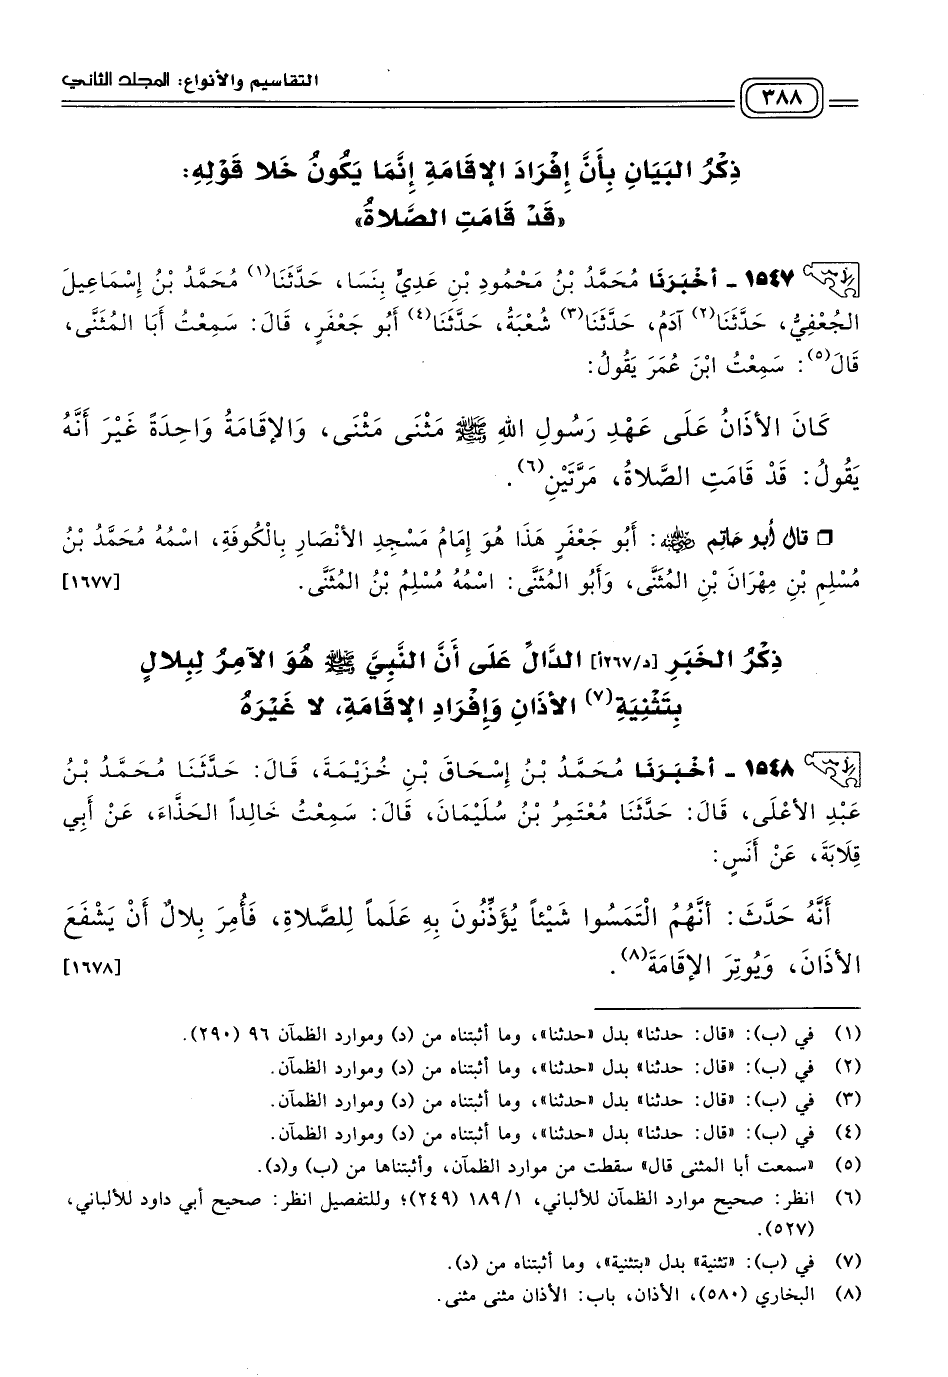 التقاسيم والأنواع: المجلد الثاني
٣٨٨
ذِكْرُ البَيَانِ بِأَنَّ إِفْرَادَ الإقَامَةِ إِنَّمَا يَكُونُ خَلا قَوْلِهِ:
«قَدْ قَامَتِ الصَّلاةُ»
١٥٤٧ - أَخْبَرَنَا مُحَمَّدُ بْنُ مَحْمُودِ بْنِ عَدِيٍّ بِنَسَا، حَدَّثَنَا(١) مُحَمَّدُ بْنُ إِسْمَاعِيلَ
الجُعْفِيُّ، حَدَّثَنَا(٢) آدَمُ، حَدَّثَنَا(٣) شُعْبَةُ، حَدَّثَنَا(٤) أَبُو جَعْفَرٍ، قَالَ: سَمِعْتُ أَبَا المُثَنَّى،
قَالَ(٥): سَمِعْتُ ابْنَ عُمَرَ يَقُولُ:
كَانَ الأَذَانُ عَلَى عَهْدِ رَسُولِ اللهِ ﷺ مَثْنَى مَثْنَى، وَالإقَامَةُ وَاحِدَةً غَيْرَ أَنَّهُ
يَقُولُ: قَدْ قَامَتِ الصَّلاةُ، مَرَّتَيْنِ(٦).
❒ قال أبو حاتم رضي الله عنه: أَبُو جَعْفَرٍ هَذَا هُوَ إِمَامُ مَسْجِدِ الأَنْصَارِ بِالْكُوفَةِ، اسْمُهُ مُحَمَّدُ بْنُ
مُسْلِمِ بْنِ مِهْرَانَ بْنِ المُثَنَّى، وَأَبُو المُثَنَّى: اسْمُهُ مُسْلِمُ بْنُ المُثَنَّى. [١٦٧٧]
ذِكْرُ الخَبَرِ [د/٢٦٧أ] الدَّالِّ عَلَى أَنَّ النَّبِيَّ ﷺ هُوَ الآمِرُ لِبِلالٍ
بِتَثْنِيَةِ(٧) الأذَانِ وَإِفْرَادِ الإقَامَةِ، لا غَيْرَهُ
١٥٤٨ - أَخْبَرَنَا مُحَمَّدُ بْنُ إِسْحَاقَ بْنِ خُزَيْمَةَ، قَالَ: حَدَّثَنَا مُحَمَّدُ بْنُ
عَبْدِ الأَعْلَى، قَالَ: حَدَّثَنَا مُعْتَمِرُ بْنُ سُلَيْمَانَ، قَالَ: سَمِعْتُ خَالِداً الحَذَّاءَ، عَنْ أَبِي
قِلَابَةَ، عَنْ أَنَسٍ:
أَنَّهُ حَدَّثَ: أَنَّهُمُ الْتَمَسُوا شَيْئاً يُؤَذِّنُونَ بِهِ عَلَماً لِلصَّلاةِ، فَأُمِرَ بِلالٌ أَنْ يَشْفَعَ
الأَذَانَ، وَيُوتِرَ الإقَامَةَ(٨). [١٦٧٨]
(١) في (ب): «قال: حدثنا» بدل «حدثنا»، وما أثبتناه من (د) وموارد الظمآن ٩٦ (٢٩٠).
(٢) في (ب): «قال: حدثنا» بدل «حدثنا»، وما أثبتناه من (د) وموارد الظمآن.
(٣) في (ب): «قال: حدثنا» بدل «حدثنا»، وما أثبتناه من (د) وموارد الظمآن.
(٤) في (ب): «قال: حدثنا» بدل «حدثنا»، وما أثبتناه من (د) وموارد الظمآن.
(٥) «سمعت أبا المثنى قال» سقطت من موارد الظمآن، وأثبتناها من (ب) و(د).
(٦) انظر: صحيح موارد الظمآن للألباني، ١/١٨٩ (٢٤٩)؛ وللتفصيل انظر: صحيح أبي داود للألباني،
(٥٢٧).
(٧) في (ب): «تثنية» بدل «بتثنية»، وما أثبتناه من (د).
(٨) البخاري (٥٨٠)، الأذان، باب: الأذان مثنى مثنى.